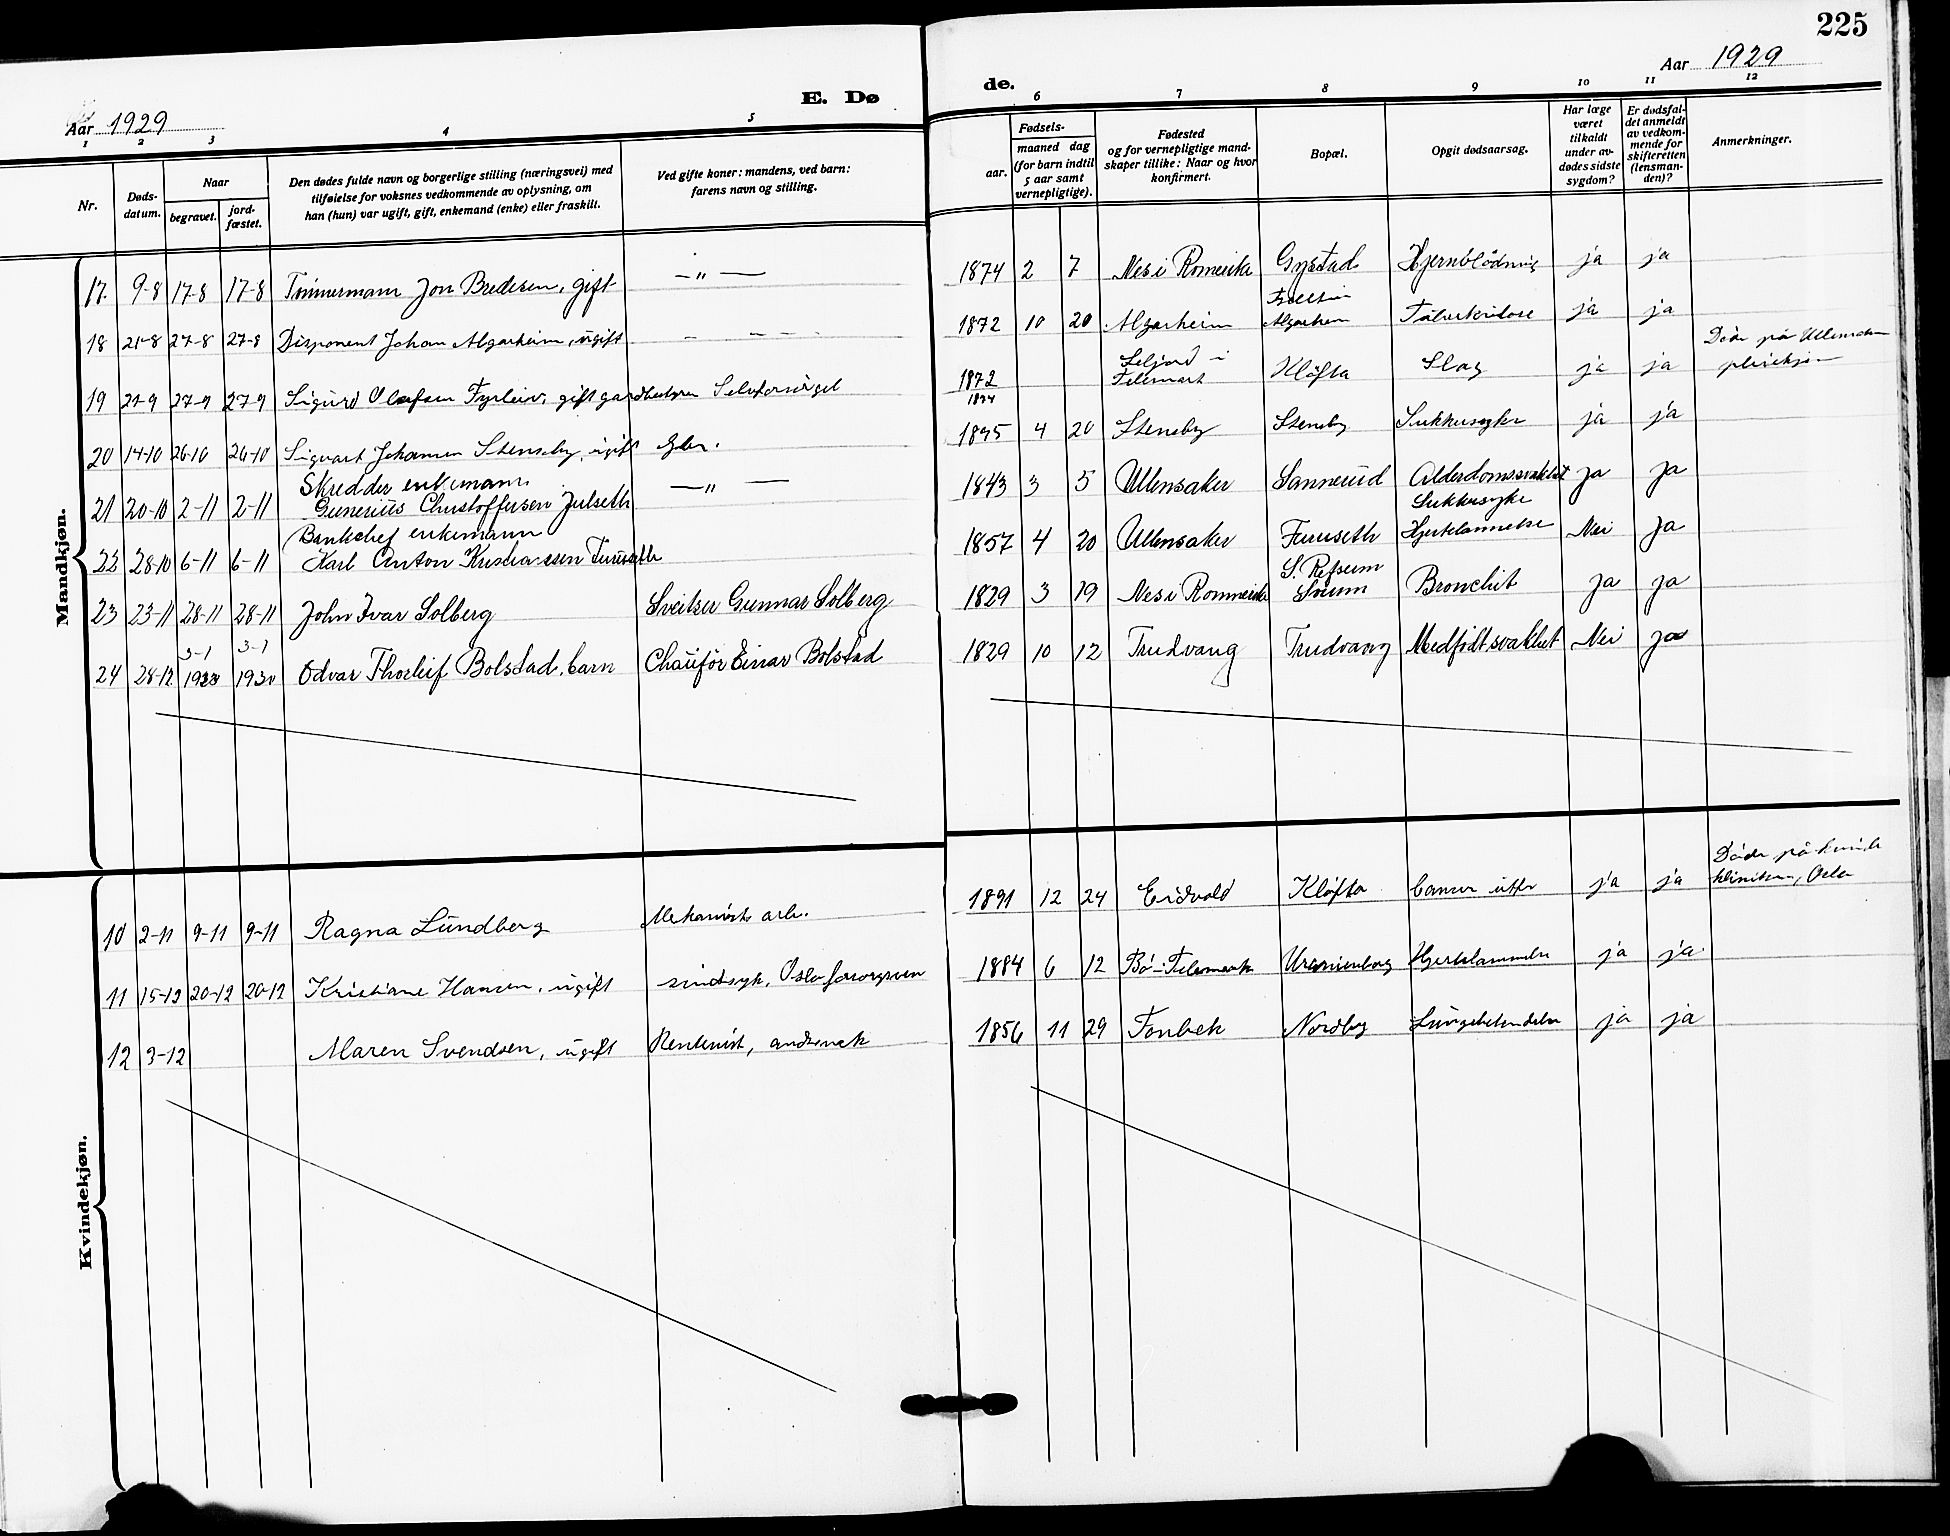 225
Aar 1929
E. Dø
de.
Aar 1929
1 2 3 4 5 6 7 8 9 10 11 12
Nr.
Døds-
datum.
Naar
begravet.
jord-
fæstet.
Den dødes fulde navn og borgerlige stilling (næringsvei) med
tilføielse for voksnes vedkommende av oplysning, om
han (hun) var ugift, gift, enkemand (enke) eller fraskilt.
Ved gifte koner: mandens, ved barn:
farens navn og stilling.
Fødsels-
aar.
maaned dag
(for barn indtil
5 aar samt
vernepligtige).
Fødested
og for vernepligtige mand-
skaper tillike: Naar og hvor
konfirmert.
Bopæl.
Opgit dødsaarsag.
Har læge
været
tilkaldt
under av-
dødes sidste
sygdom?
Er dødsfal-
det anmeldt
av vedkom-
mende for
skifteretten
(lensman-
den)?
Anmerkninger.
Mandkjøn.
17. 9-8 17-8 17-8 Tømmermann Jon Bredesen, gift — " — 1874 2 7 Nes i Romerike Gystad Hjernblödning ja ja
18 21-8 27-8 27-8 Disponent Johan Algarheim, ugift - - - - 1872 10 20 Algarheim Algarheim ja ja
19 21-9 27-9 27-9 Sigurd Olafsen Fyrleiv, gift gardbestyrer Selvforsörget 1872 Seljord i
Telemark Kløfta Slag ja ja Döde på Ullensaker
pleiehjem
1874
20 14-10 26-10 26-10 Sigvart Johansen Stensby, ugift 1895 4 20 Stensby Stensby Sukkersyke ja ja
Skredder enkemann
21 20-10 2-11 2-11 Generius Christoffersen Julseth — " — 1843 3 5 Ullensaker Sannerud Alderdomssvakhet ja ja
Sukkersyke
Bankchef enkemann
22 28-10 6-11 6-11 Karl Anton Kristiansen Furuseth 1857 4 20 Ullensaker Furuseth Hjertelammelse Nei ja
S. Refsum
23 23-11 28-11 28-11 John Ivar Solberg Sveitser Gunnar Solberg 1829 3 19 Nes i Romerike Bronchit ja ja
3-1 3-1
24 28-12 1930 1930 Odvar Thorleif Bolstad, barn Chauffør Einar Bolstad 1829 10 12 Trudvang Trudvang Medfödt svakhet Nei ja
Kvindekjøn.
10 2-11 9-11 9-11 Ragna Lundberg Mekanisk arb. 1891 12 24 Eidvold Kløfta Cancer uteri ja ja Döde på kvinde
kliniken, Oslo
11 15-12 20-12 20-12 Kristiane Hansen, ugift sindsyk, Oslo forsorgsven 1884 6 12 Bö i Telemark Uranienborg Hjertelammelse ja ja
12 3-12 Maren Svendsen, ugift Rentenist, andsvak 1856 11 29 Fonbek Nordby Lungebetendelse ja ja